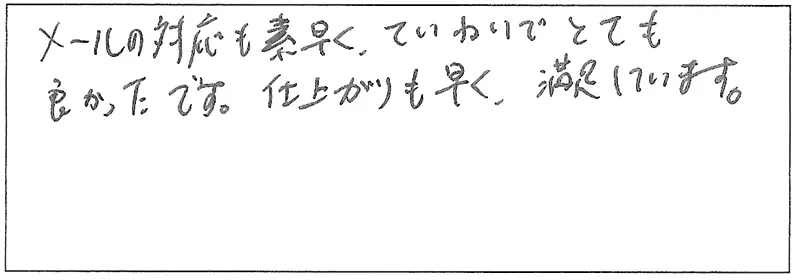 メールの対応も素早く、ていねいでとても
良かったです。仕上がりも早く、満足しています。